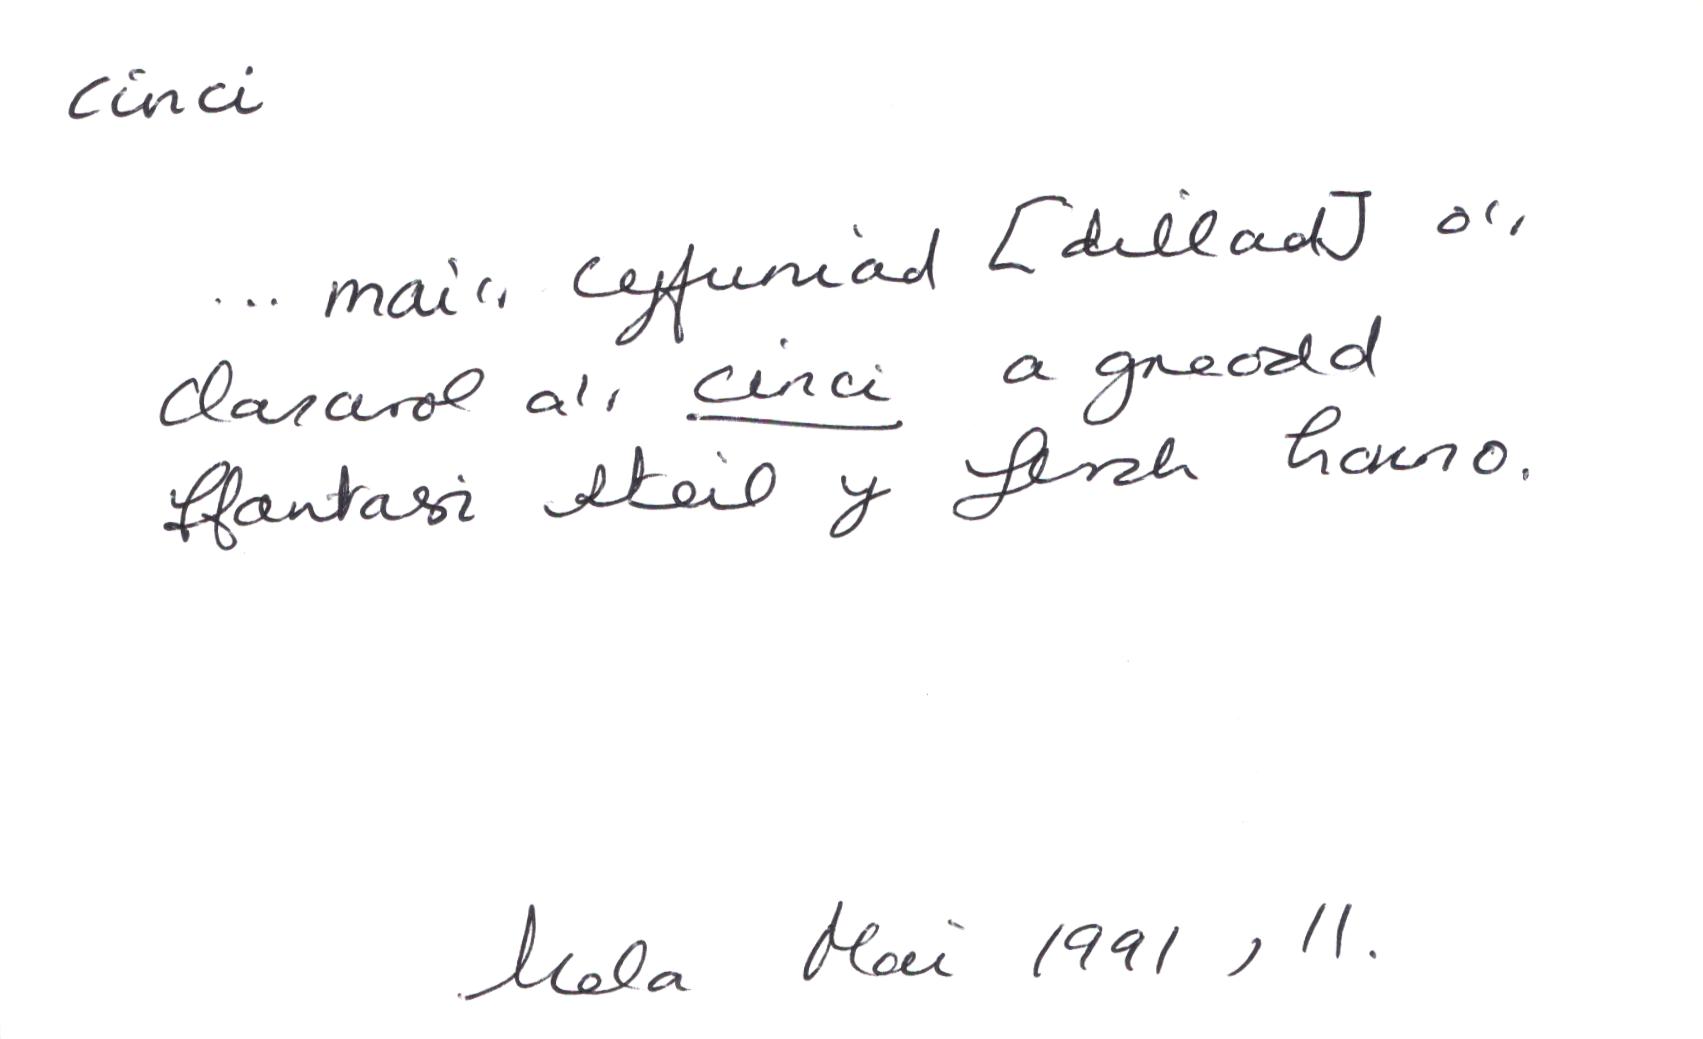 cinci
... mai'r cyfuniad [dillad] o'r
clasurol a'r cinci a greodd
ffantasi steil y ferch honno.
Mela Mai 1991, 11.